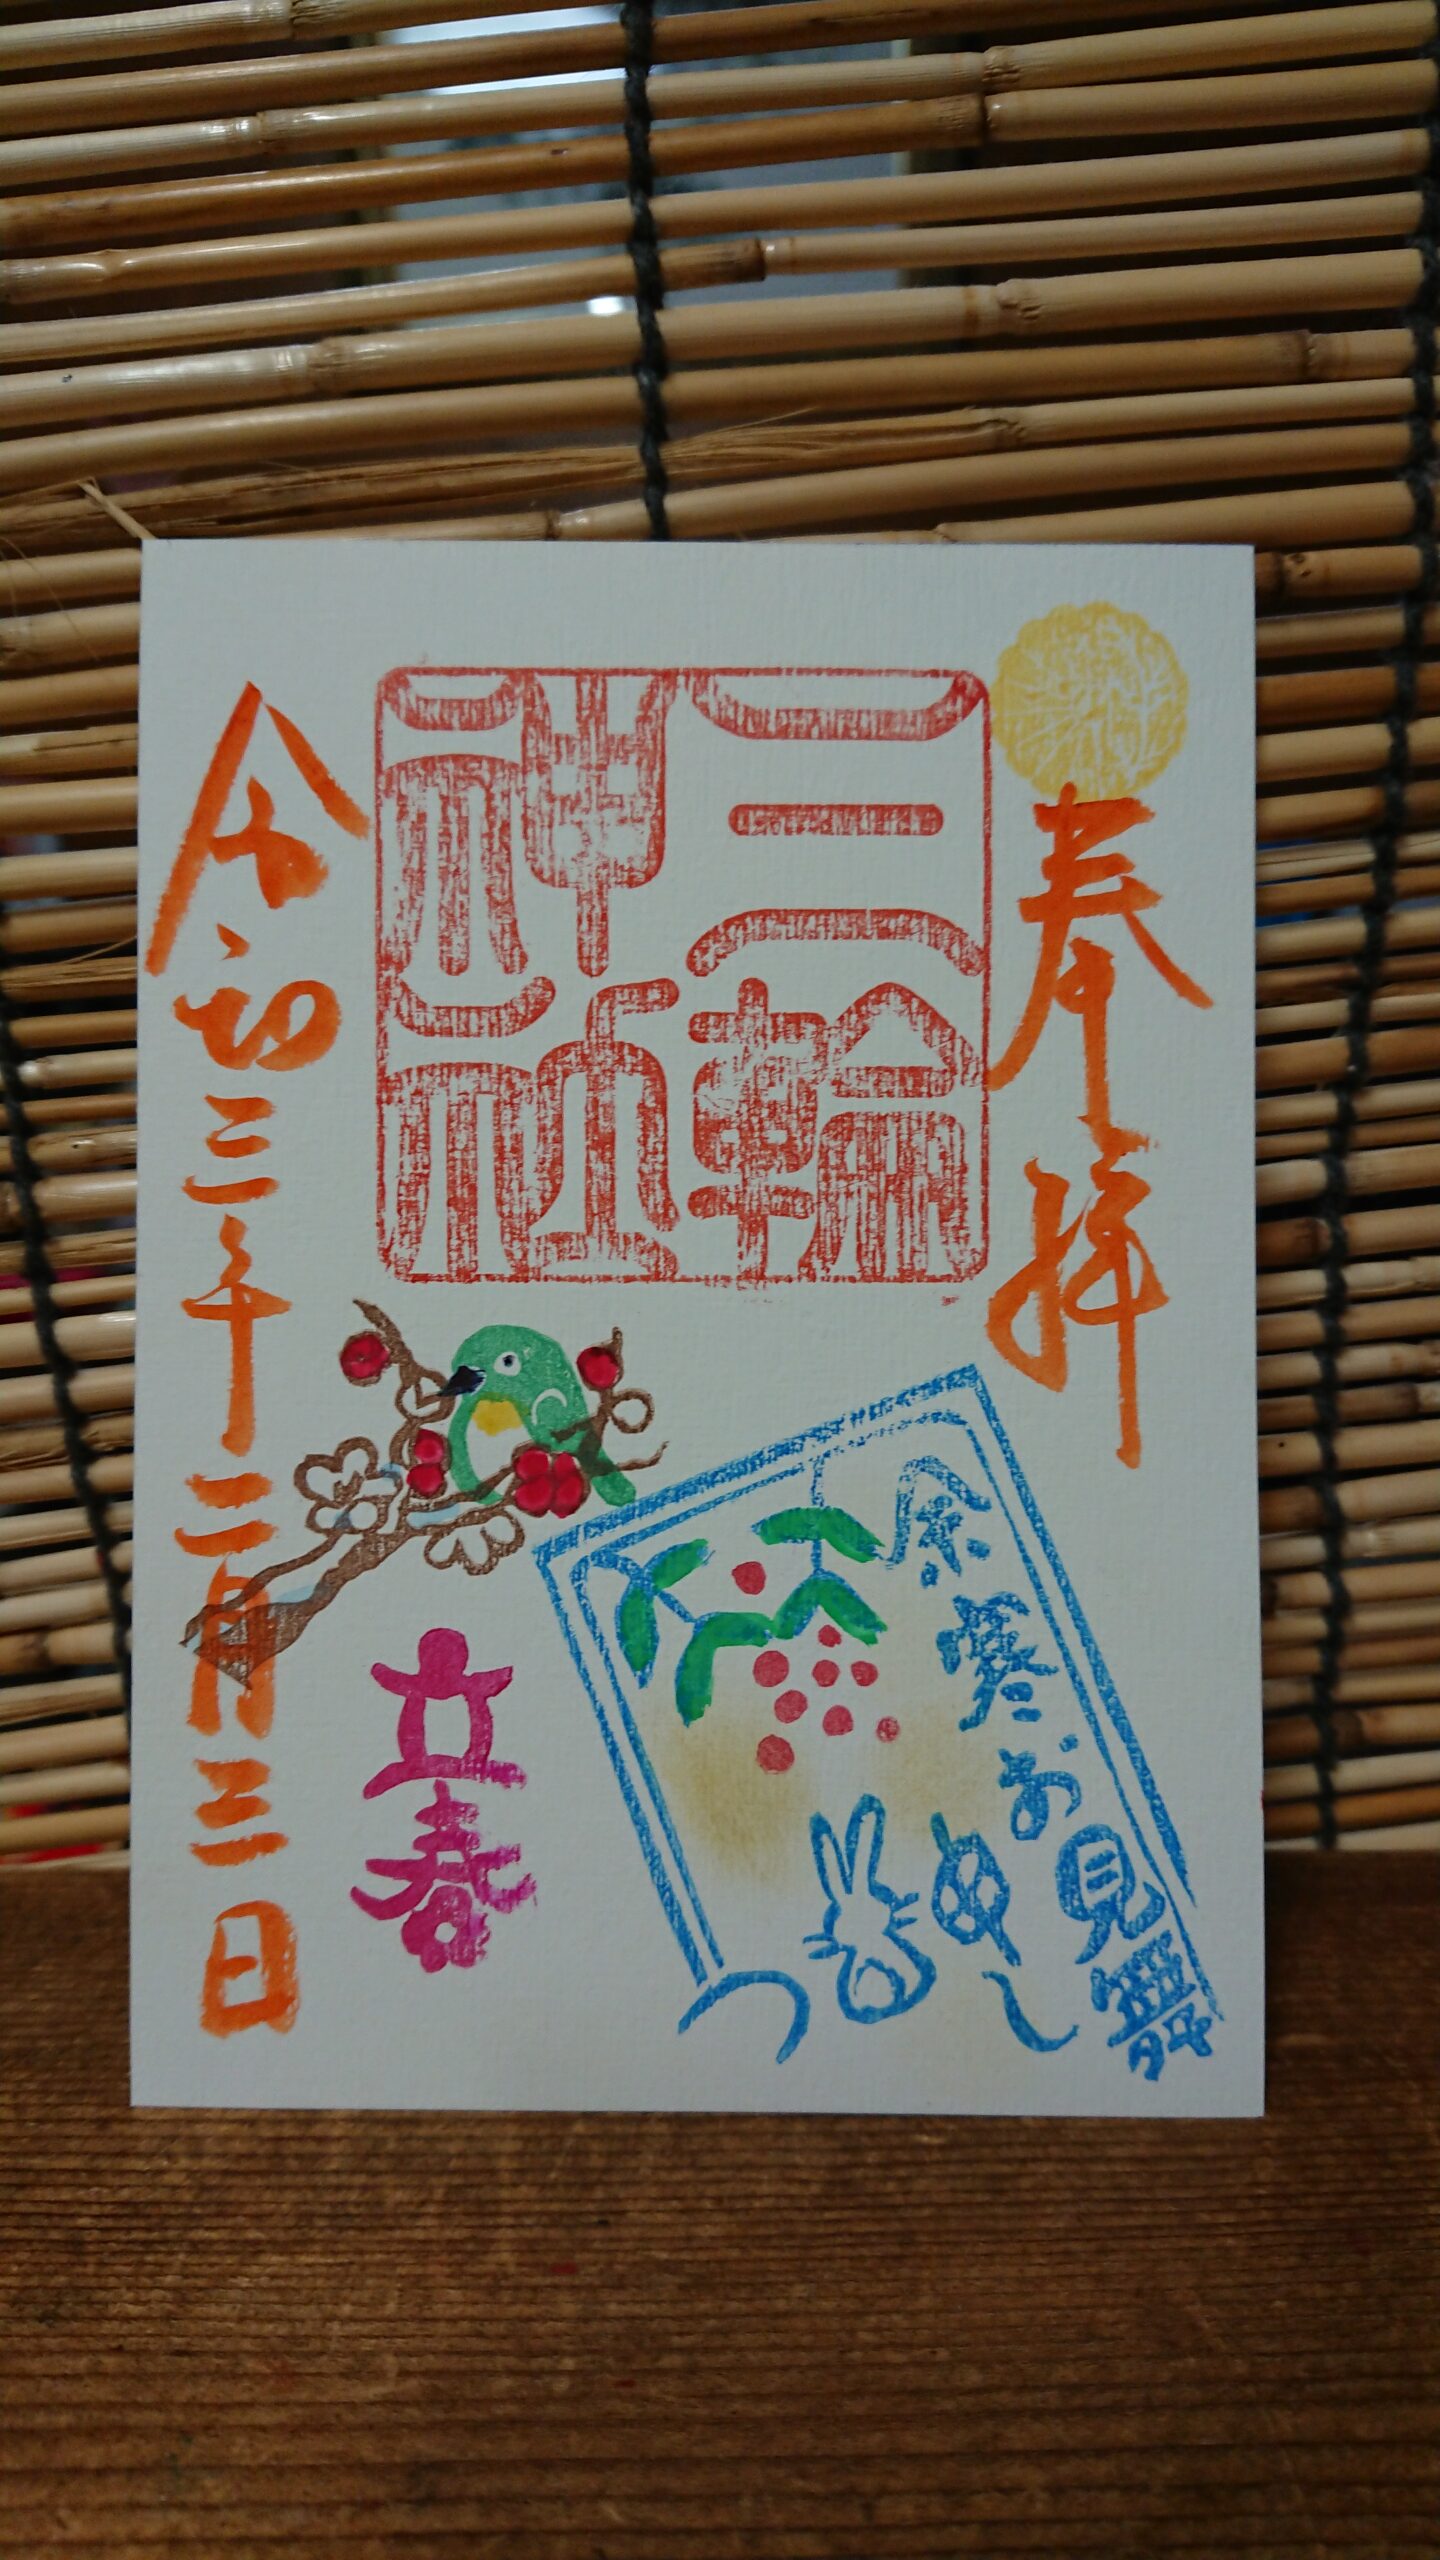 奉拝
三輪
神社
令和三年二月三日
立春
余寒お見舞
申し
つ